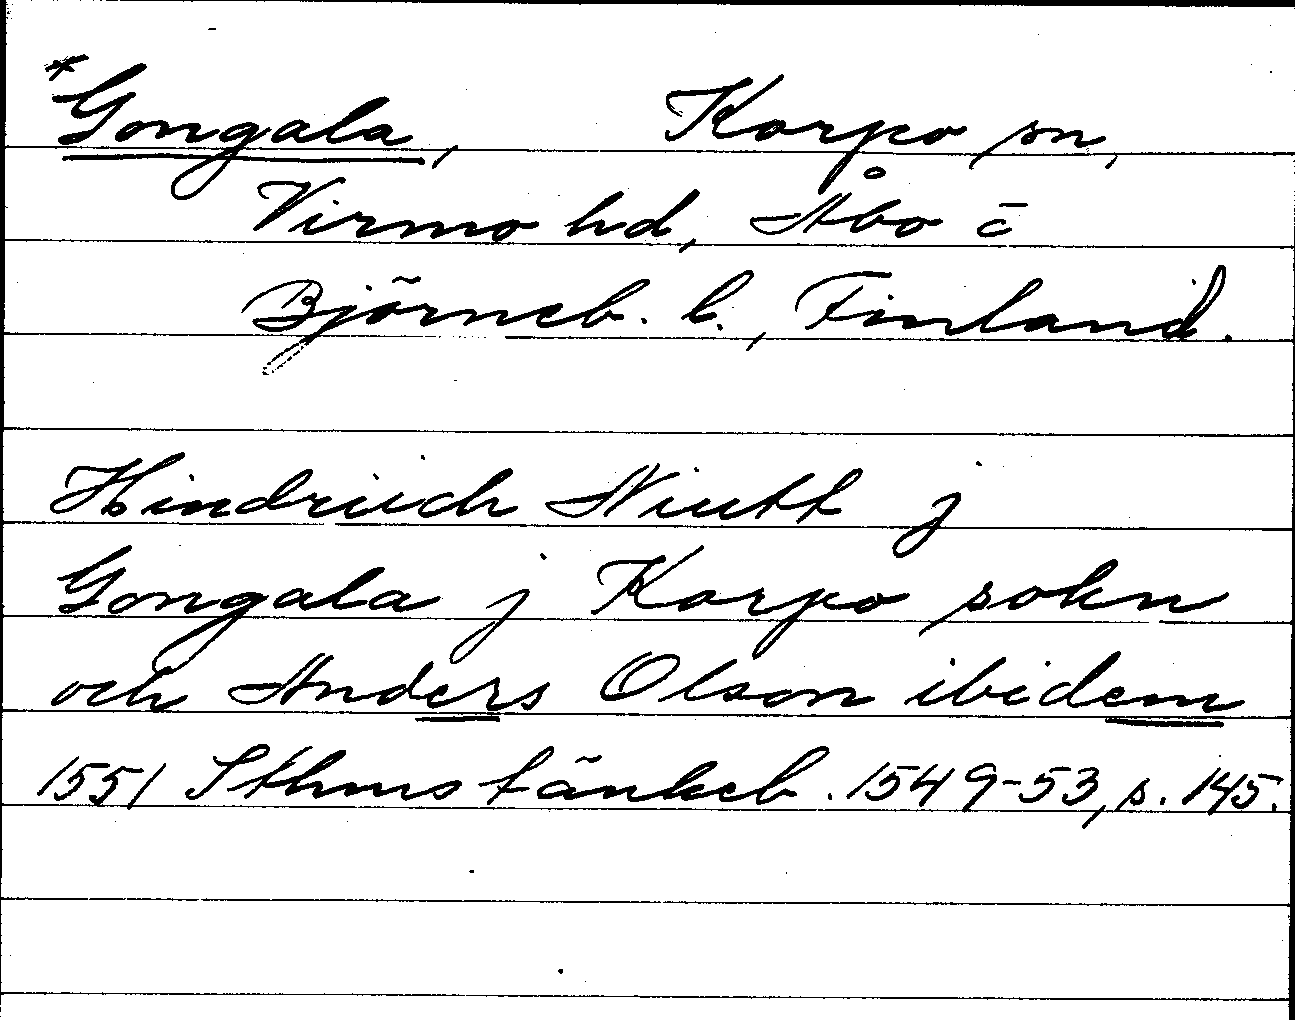 *Gongala, Korpo sn,
Virmo hd, Åbo c̄
Björneb. l., Finland.
Hindrich Niutt j
Gongala j Korpo sokn
och Anders Olson ibidem
1551 Sthms tänkeb. 1549-53, s. 145.